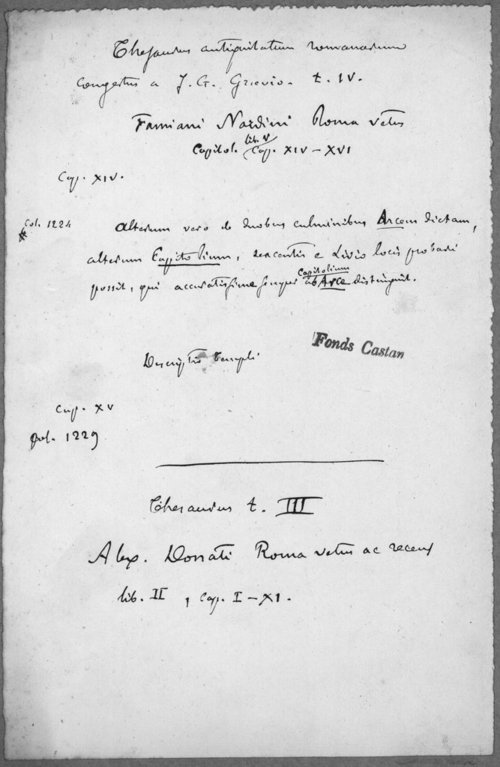 Thesaurus antiquitatum romanarum
congestus a J. G. Grævio. t. IV.
Famiani Nardini Roma vetus
lib. V
Capitol. Cap. XIV – XVI
Cap. XIV.
Col. 1224
alterum vero de duobus culminibus Arcem dictam,
alterum Capitolium, sexcentis e Livio locis probari
possit, qui accuratissime semper Capitolium ab Arce distinguit.
Descriptio templi
Fonds Castan
Cap. XV
Col. 1229
Thesaurus t. III
Alex. Donati Roma vetus ac recens
lib. II, Cap. I – XI.